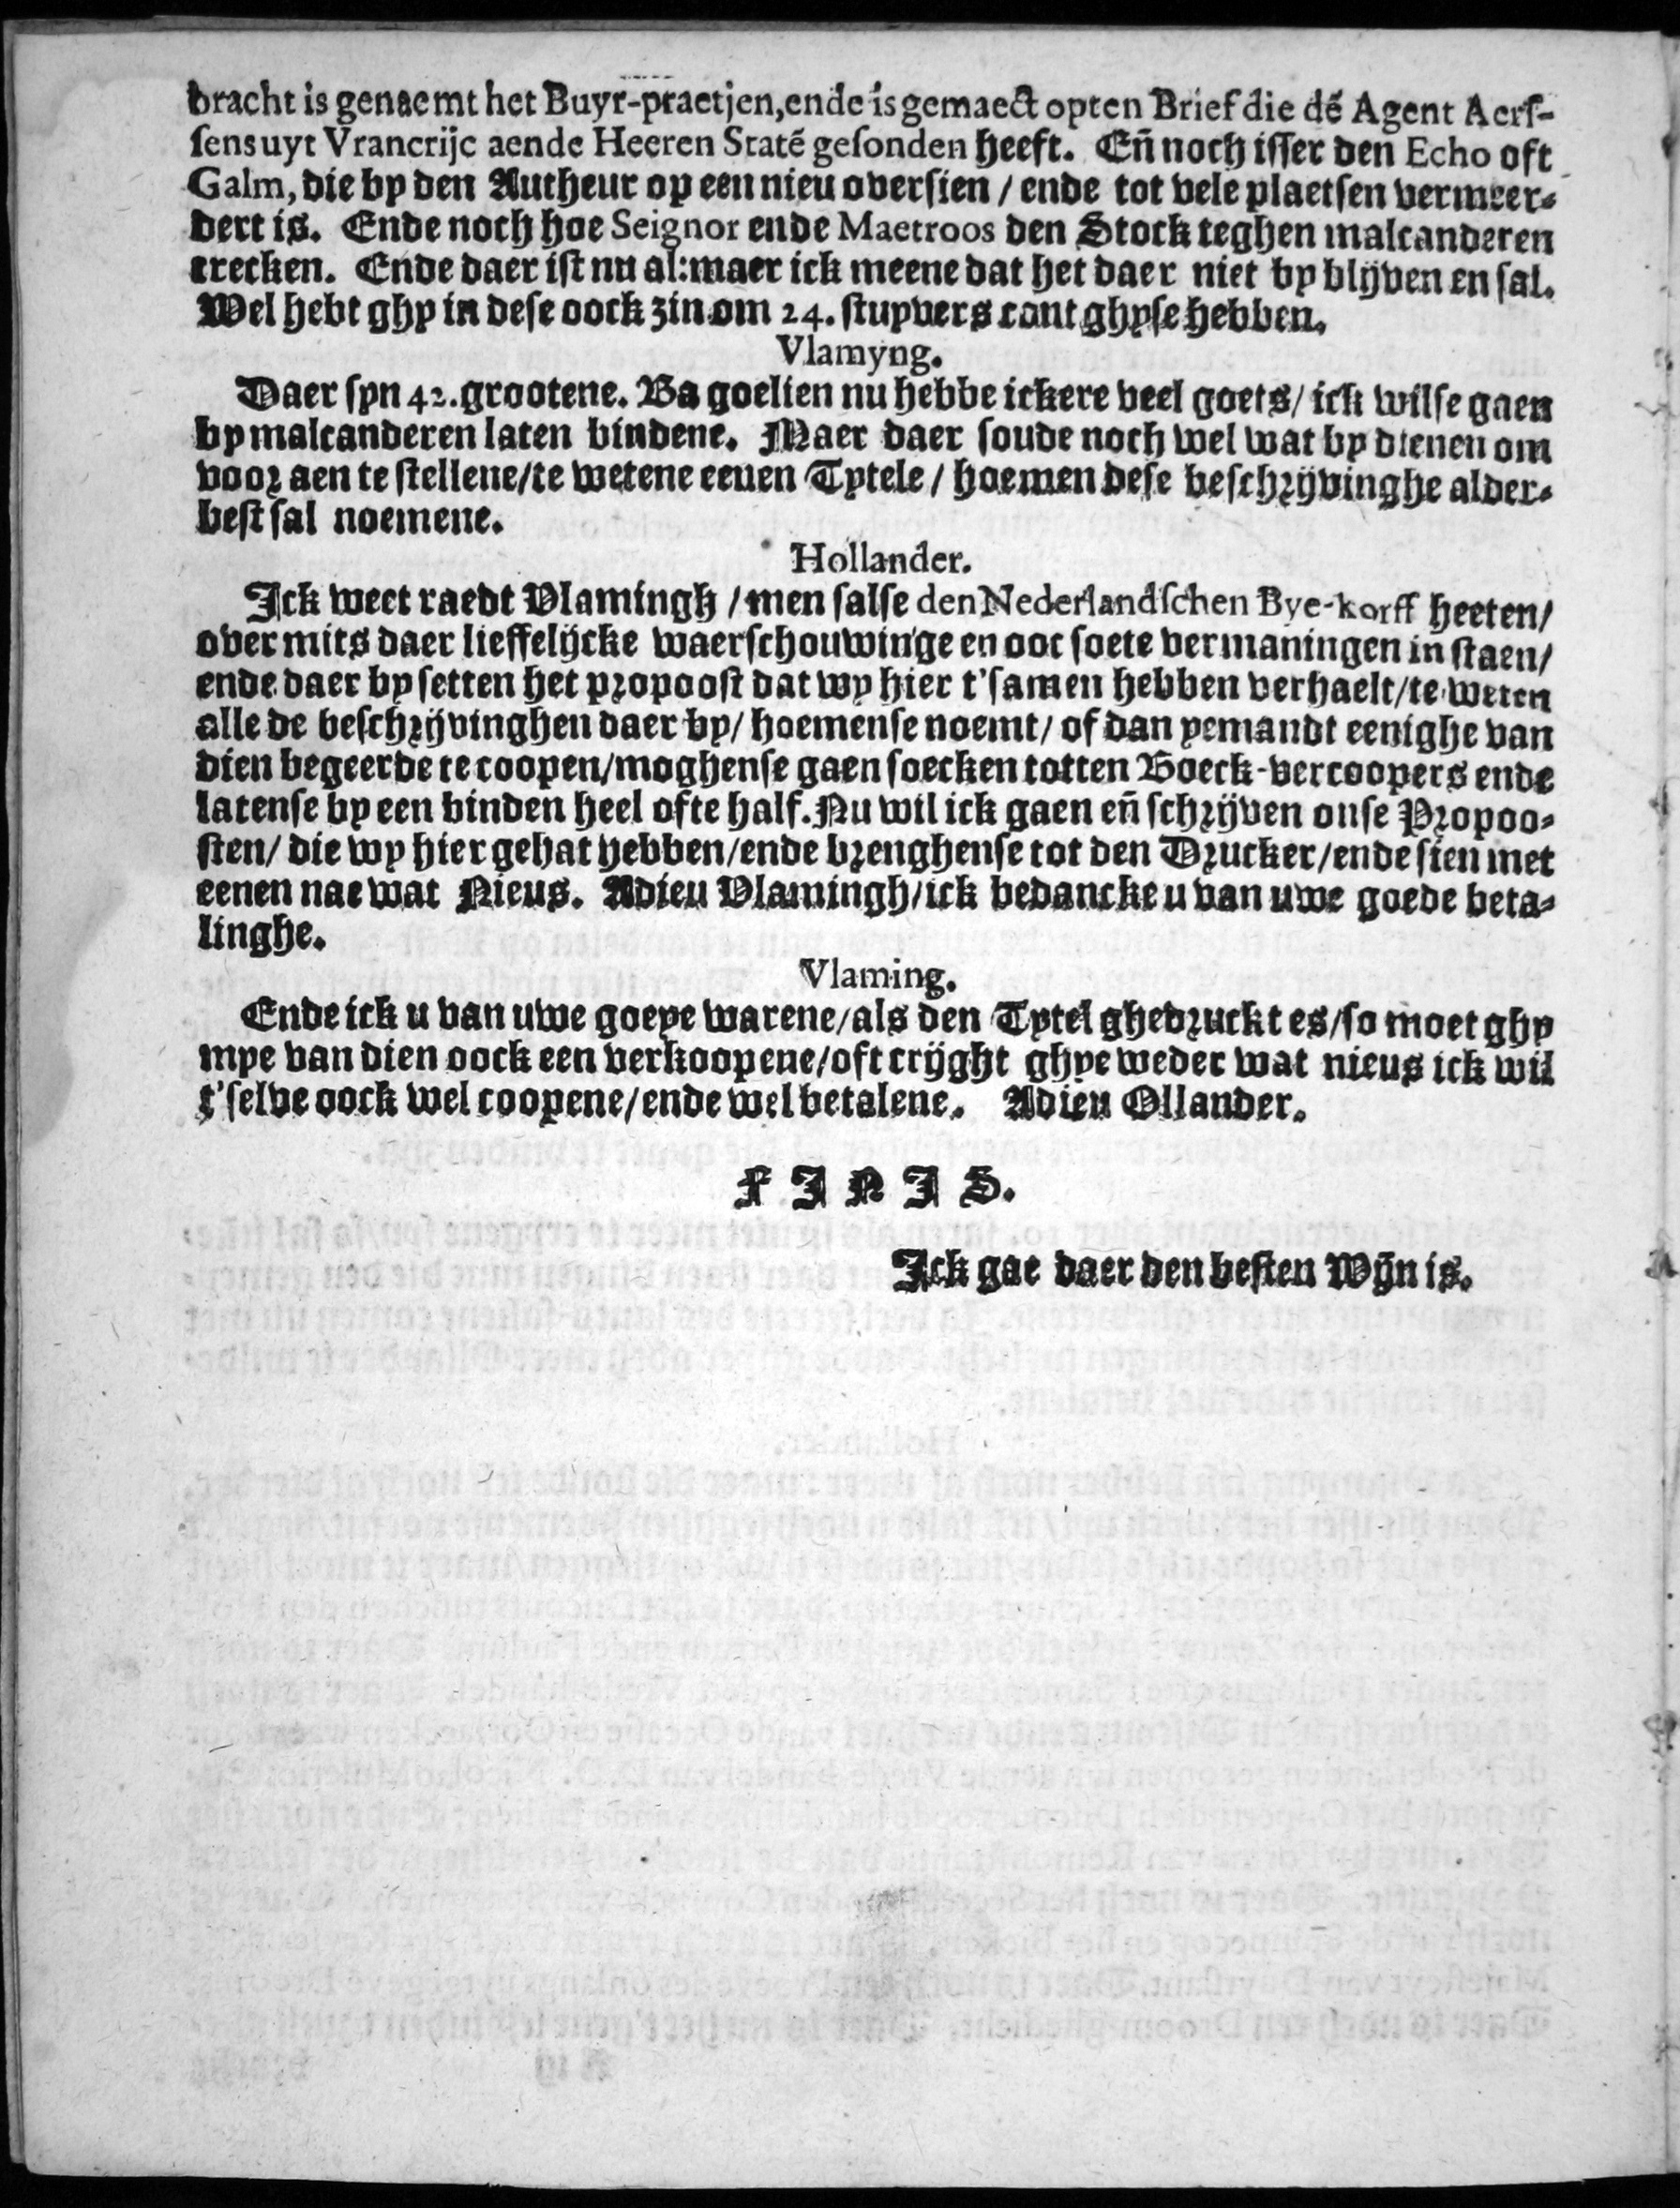 bracht is genaemt het Buyr-praetjen, ende is gemaect opten Brief die dē Agent Aerſ-
ſens uyt Vrancrijc aende Heeren Statē geſonden heeft. Eñ noch iſſer den Echo oft
Galm, die by den Autheur op een nieu overſien / ende tot vele plaetſen vermeer-
dert is. Ende noch hoe Seignor ende Maetroos den Stock teghen malcanderen
trecken. Ende daer iſt nu al: maer ick meene dat het daer niet by blijven en ſal.
Wel hebt ghy in deſe oock zin om 24. ſtuyvers cant ghyſe hebben.
Vlamyng.
Daer ſyn 42. grootene. Ba goelien nu hebbe ickere veel goets / ick wilſe gaen
by malcanderen laten bindene. Maer daer ſoude noch wel wat by dienen om
voor aen te ſtellene / te wetene eenen Tytele / hoemen deſe beſchrijvinghe alder-
beſt ſal noemene.
Hollander.
Ick weet raedt Vlamingh / men ſalſe den Nederlandſchen Bye-korff heeten /
over mits daer lieffelijcke waerſchouwinge en ooc ſoete vermaningen in ſtaen /
ende daer by ſetten het propooſt dat wy hier t'ſamen hebben verhaelt / te weten
alle de beſchrijvinghen daer by / hoemenſe noemt / of dan yemandt eenighe van
dien begeerde te coopen / moghenſe gaen ſoecken totten Boeck-vercoopers ende
latenſe by een binden heel ofte half. Nu wil ick gaen eñ ſchrijven onſe Propoo-
ſten / die wy hier gehat hebben / ende brenghenſe tot den Drucker / ende ſien met
eenen nae wat Nieus. Adieu Vlamingh / ick bedancke u van uwe goede beta-
linghe.
Vlaming.
Ende ick u van uwe goeye warene / als den Tytel ghedruckt es / ſo moet ghy
mye van dien oock een verkoopene / oft crijght ghye weder wat nieus ick wil
t'ſelve oock wel coopene / ende wel betalene. Adieu Ollander.
FINIS.
Ick gae daer den beſten Wijn is.